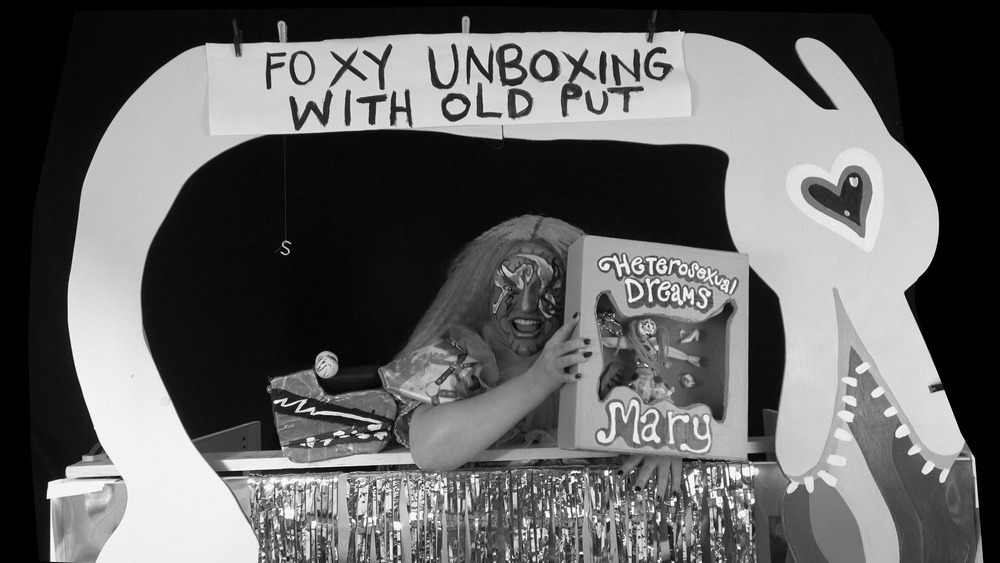 FOXY UNBOXING
WITH OLD PUT
S
Heterosexual
Dreams
Mary